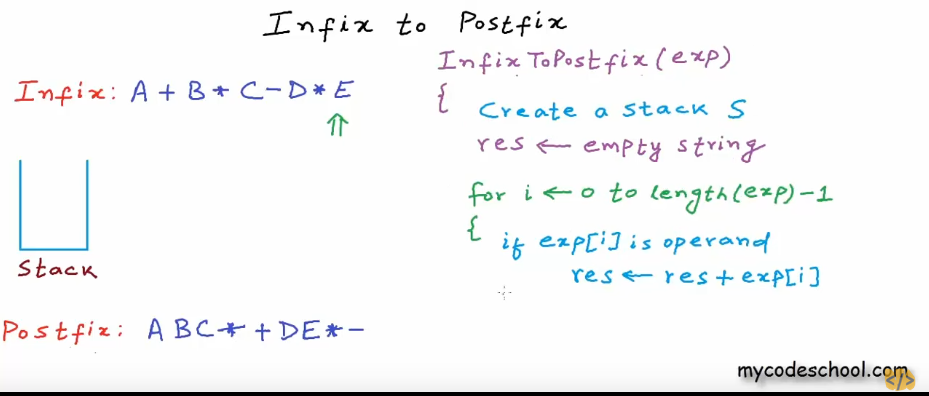 Infix to Postfix
Infix: A + B * C - D * E
Stack
Postfix: A B C * + D E * -
InfixToPostfix(exp)
{
Create a stack S
res ← empty string
for i ← 0 to length(exp)-1
{
if exp[i] is operand
res ← res + exp[i]
mycodeschool.com
</>